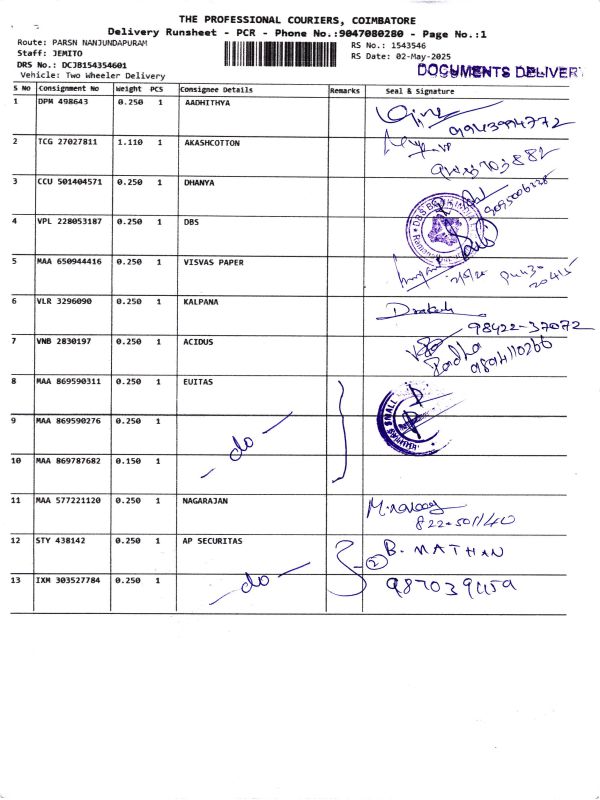 THE PROFESSIONAL COURIERS, COIMBATORE
Delivery Runsheet - PCR - Phone No.:9047080280 - Page No.:1
Route: PARSN NANJUNDAPURAM
RS No.: 1543546
Staff: JEMITO
RS Date: 02-May-2025
DRS No.: DCJB154354601
DOCUMENTS DELIVER
Vehicle: Two Wheeler Delivery
S No Consignment No Weight PCS Consignee Details Remarks Seal & Signature
1 DPM 498643 0.250 1 AADHITHYA
9943994772
2 TCG 27027811 1.110 1 AKASHCOTTON
3 CCU 501404571 0.250 1 DHANYA
4 VPL 228053187 0.250 1 DBS
5 MAA 650944416 0.250 1 VISVAS PAPER
6 VLR 3296090 0.250 1 KALPANA
98422-37072
7 VNB 2830197 0.250 1 ACIDUS
Radha
9894110266
8 MAA 869590311 0.250 1 EUITAS
9 MAA 869590276 0.250 1
- do -
10 MAA 869787682 0.150 1
11 MAA 577221120 0.250 1 NAGARAJAN
12 STY 438142 0.250 1 AP SECURITAS
2 B. MATHAN
13 IXM 303527784 0.250 1 - do -